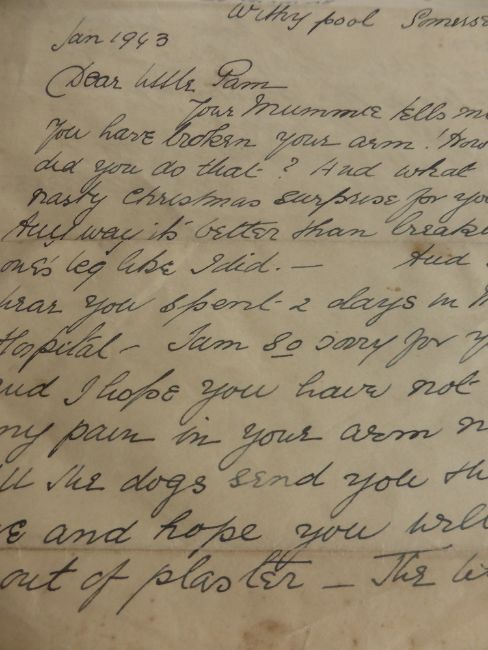 Withypool Somerse
Jan 1943
Dear little Pam
Your Mummie tells me
you have broken your arm! How
did you do that? And what
nasty Christmas surprise for yo
Anyway it's better than breaki
one's leg like I did. — And
hear you spent 2 days in
Hospital — I am so sorry for y
and I hope you have not
ny pain in your arm n
ll the dogs send you th
ve and hope you will
out of plaster — The